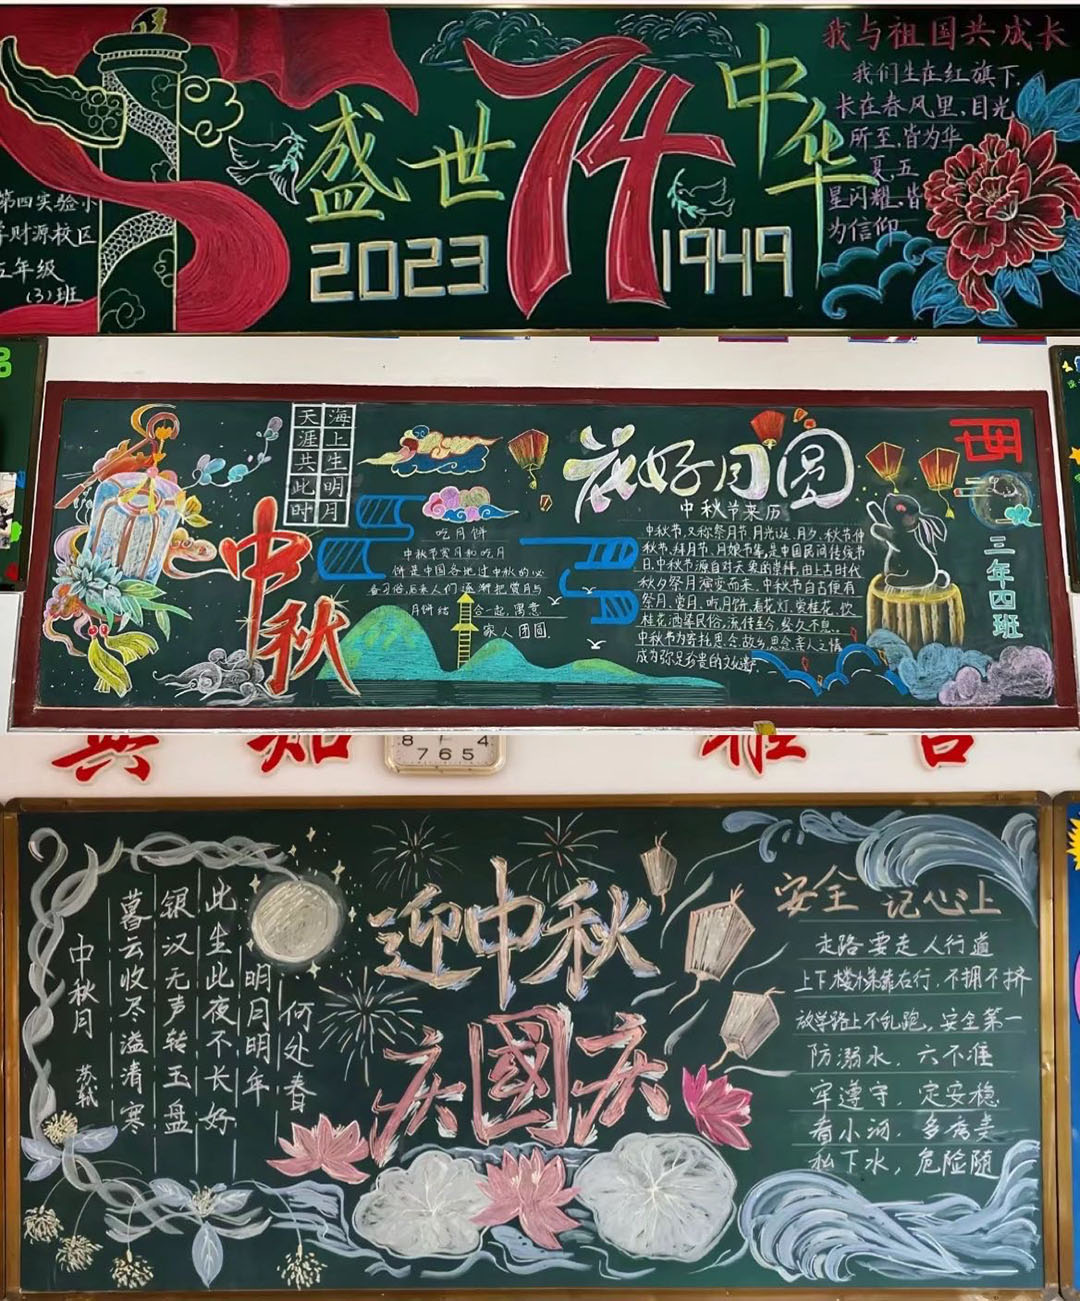 盛世中华
74
2023
1949
第四实验小
学财源校区
五年级
(3)班
我与祖国共成长
我们生在红旗下,
长在春风里,目光
所至,皆为华
夏,五
星闪耀,皆
为信仰
海上生明月
天涯共此时
中秋
吃月饼
中秋节赏月和吃月
饼是中国各地过中秋的必
备习俗,后来人们逐渐把赏月与
月饼结合一起,寓意
家人团圆.
花好月圆
中秋节来历
中秋节,又称祭月节、月光诞、月夕、秋节、仲
秋节、拜月节、月娘节等,是中国民间传统节
日.中秋节源自对天象的崇拜,由上古时代
秋夕祭月演变而来.中秋节自古便有
祭月、赏月、吃月饼、看花灯、赏桂花、饮
桂花酒等民俗,流传至今,经久不息.
中秋节为寄托思念故乡,思念亲人之情,
成为弥足珍贵的文化遗产
三年四班
典 知
8 7 6 5 4
雅 言
迎中秋
庆國庆
中秋月 苏轼
暮云收尽溢清寒
银汉无声转玉盘
此生此夜不长好
明月明年
何处春
安全 记心上
走路要走人行道
上下楼梯靠右行,不拥不挤
放学路上不乱跑,安全第一
防溺水,六不准
牢遵守,定安稳
看小河,多病毒
私下水,危险随